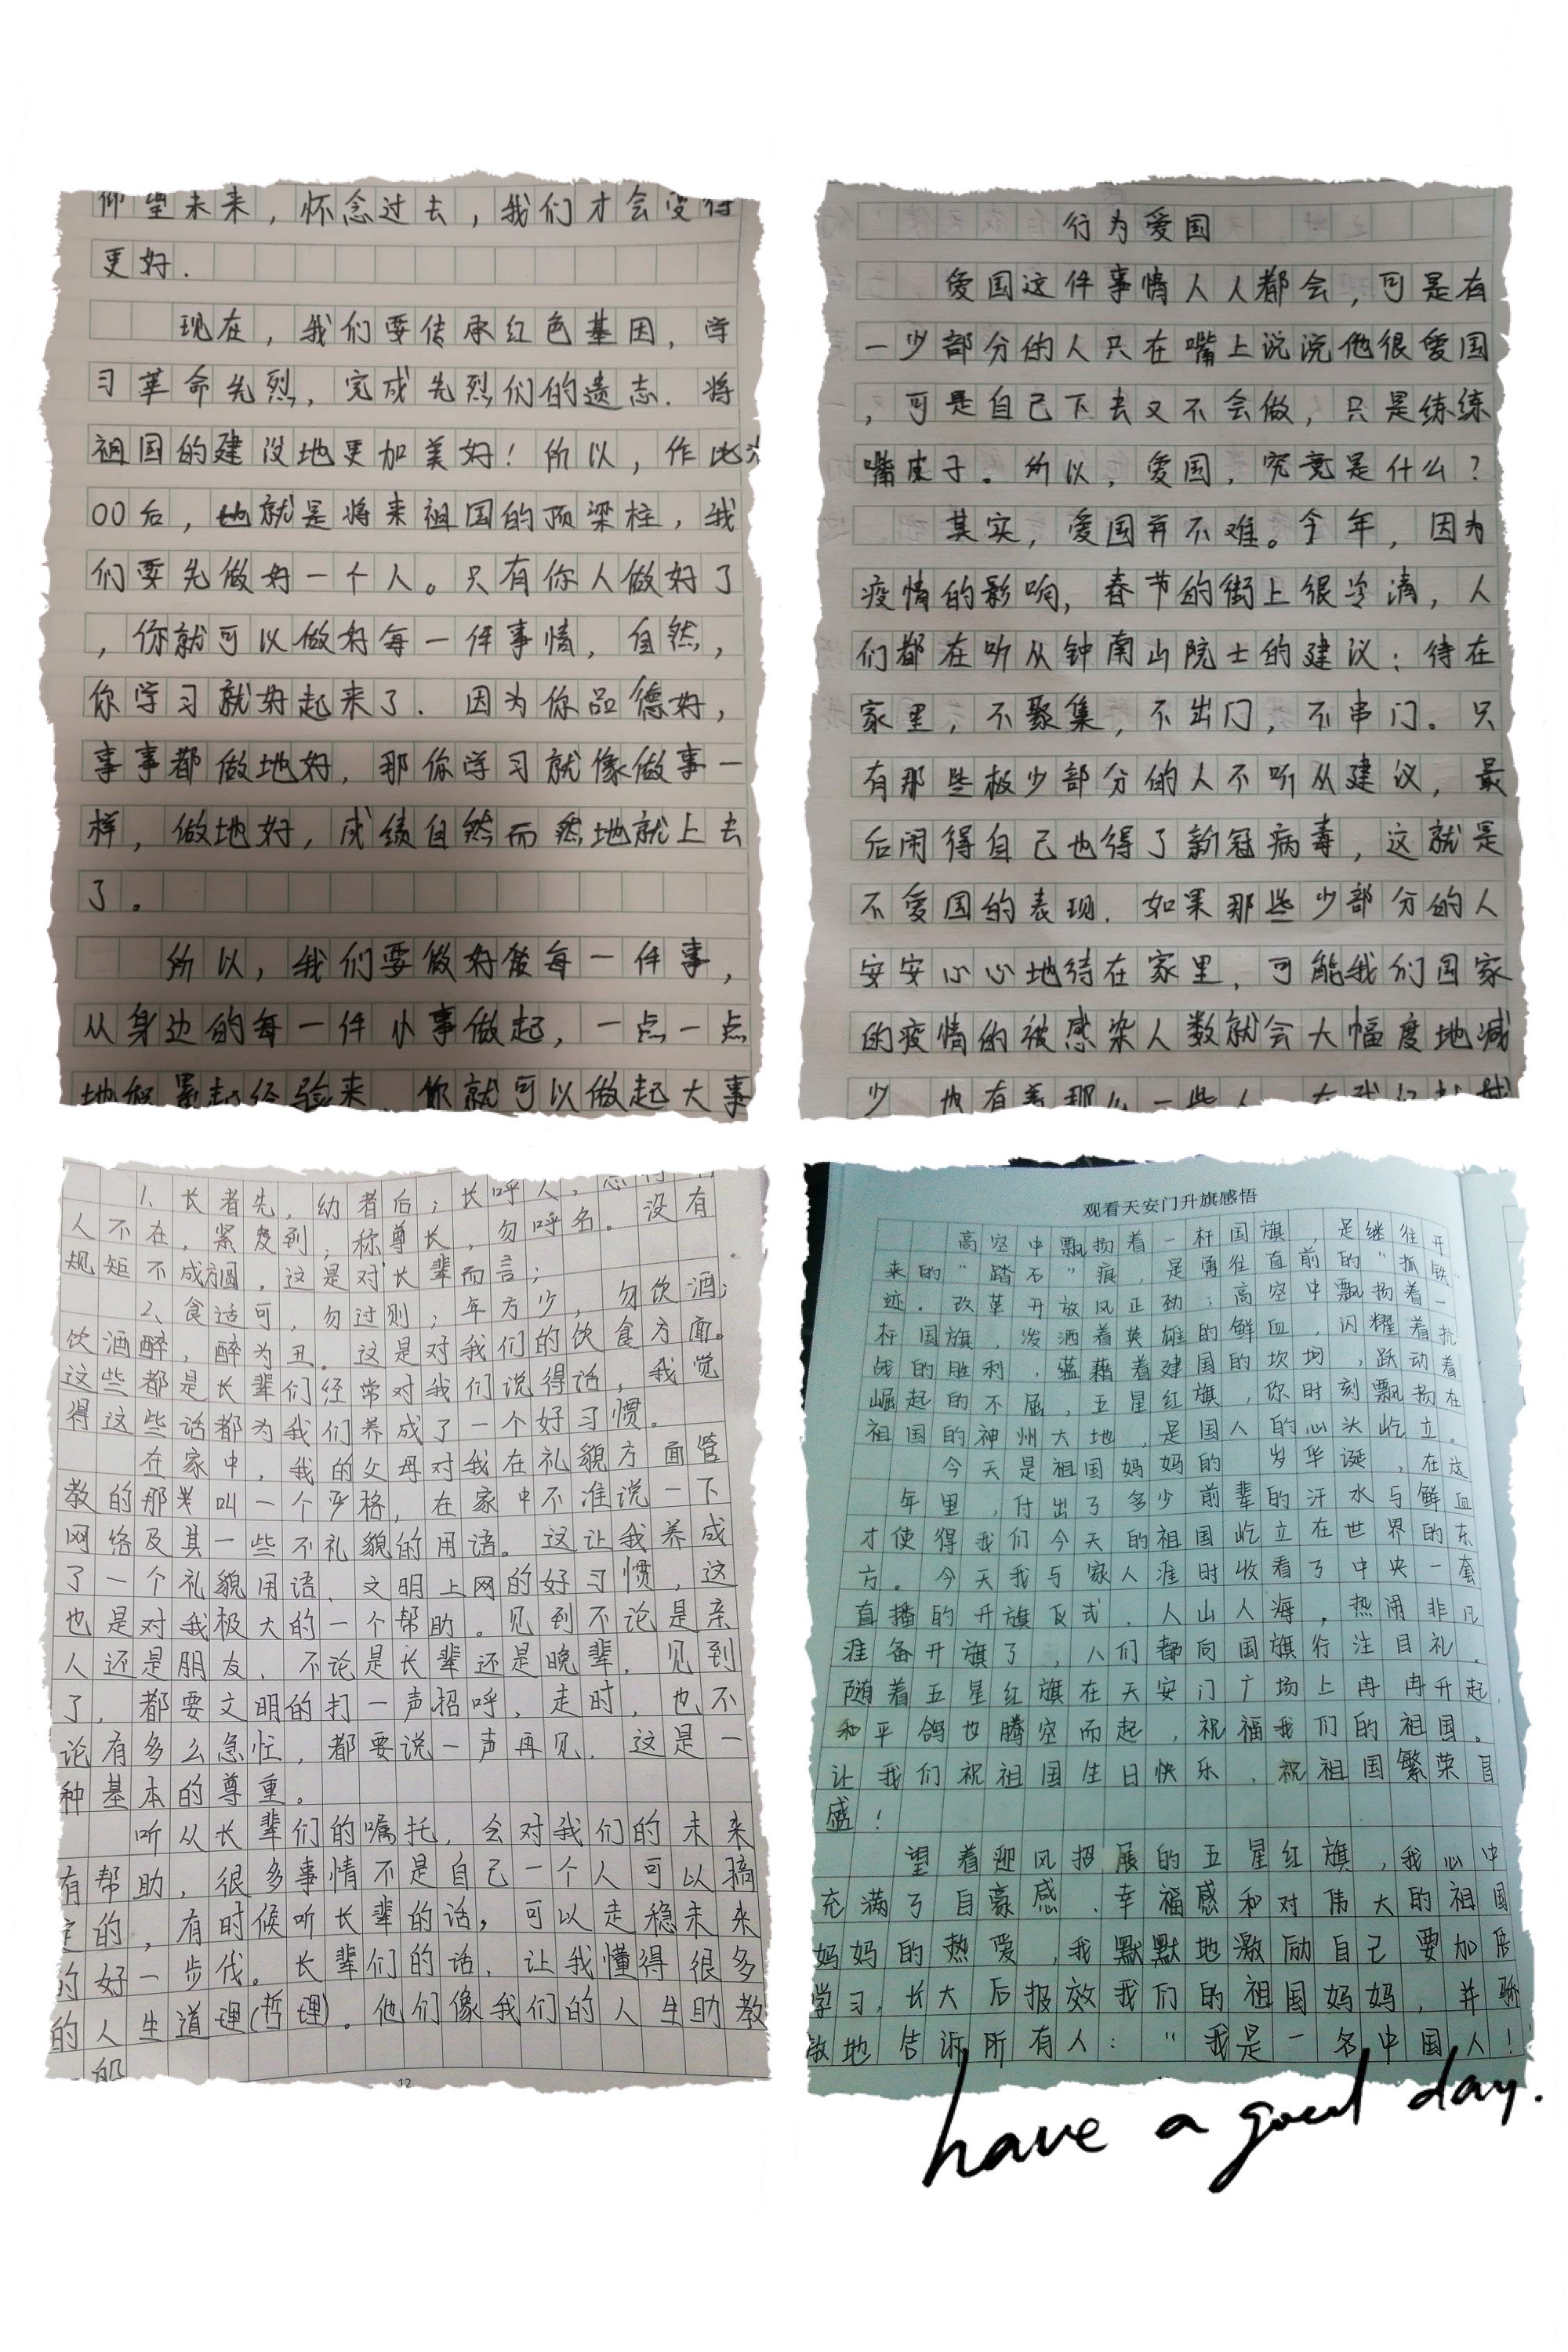 仰望未来，怀念过去，我们才会变得
更好.
现在，我们要传承红色基因，学
习革命先烈，完成先烈们的遗志.将
祖国的建设地更加美好！所以，作
00后，就是将来祖国的顶梁柱，我
们要先做好一个人。只有你人做好了
，你就可以做好每一件事情，自然，
你学习就好起来了.因为你品德好，
事事都做地好，那你学习就像做事一
样，做地好，成绩自然而然地就上去
了。
所以，我们要做好每一件事，
从身边的每一件小事做起，一点一点
地积累起经验来，你就可以做起大事
行为爱国
爱国这件事情人人都会，可是有
一少部分的人只在嘴上说说他很爱国
，可是自己下去又不会做，只是练练
嘴皮子。所以，爱国，究竟是什么？
其实，爱国并不难。今年，因为
疫情的影响，春节的街上很冷清，人
们都在听从钟南山院士的建议：待在
家里，不聚集，不出门，不串门。只
有那些极少部分的人不听从建议，最
后闹得自己也得了新冠病毒，这就是
不爱国的表现.如果那些少部分的人
安安心心地待在家里，可能我们国家
的疫情的被感染人数就会大幅度地减
少 也有着那么一些人
1、长者先，幼者后；长呼人，
人不在，紧度到；称尊长，勿呼名。没有
规矩不成方圆，这是对长辈而言；
2、食适可，勿过则；年方少，勿饮酒；
饮酒醉，醉为丑。这是对我们的饮食方面。
这些都是长辈们经常对我们说得话，我觉
得这些话都为我们养成了一个好习惯。
在家中，我的父母对我在礼貌方面管
教的那叫一个严格，在家中不准说一下
网络及其一些不礼貌的用语。这让我养成
了一个礼貌用语、文明上网的好习惯，这
也是对我极大的一个帮助。见到不论是亲
人还是朋友，不论是长辈还是晚辈，见到
了，都要文明的打一声招呼，走时，也不
论有多么急忙，都要说一声再见，这是一
种基本的尊重。
听从长辈们的嘱托，会对我们的未来
有帮助，很多事情不是自己一个人可以搞
定的，有时候听长辈的话，可以走稳未来
的好一步伐。长辈们的话，让我懂得很多
的人生道理(哲理)。他们像我们的人生助教
一般
12
观看天安门升旗感悟
高空中飘扬着一杆国旗，是继往开
来的“踏石”痕，是勇往直前的“抓铁”
迹.改革开放风正劲；高空中飘扬着一
杆国旗，泼洒着英雄的鲜血，闪耀着抗
战的胜利，蕴藉着建国的坎坷，跃动着
崛起的不屈，五星红旗，你时刻飘扬在
祖国的神州大地，是国人的心头屹立。
今天是祖国妈妈的 岁华诞，在这
年里，付出了多少前辈的汗水与鲜血
才使得我们今天的祖国屹立在世界的东
方。今天我与家人准时收看了中央一套
直播的升旗仪式，人山人海，热闹非凡
准备升旗了，人们都向国旗行注目礼，
随着五星红旗在天安门广场上冉冉升起，
和平鸽也腾空而起，祝福我们的祖国。
让我们祝祖国生日快乐，祝祖国繁荣昌
盛！
望着迎风招展的五星红旗，我心中
充满了自豪感、幸福感和对伟大的祖国
妈妈的热爱，我默默地激励自己要加倍
学习，长大后报效我们的祖国妈妈，并骄
傲地告诉所有人：“我是一名中国人！
have a good day.